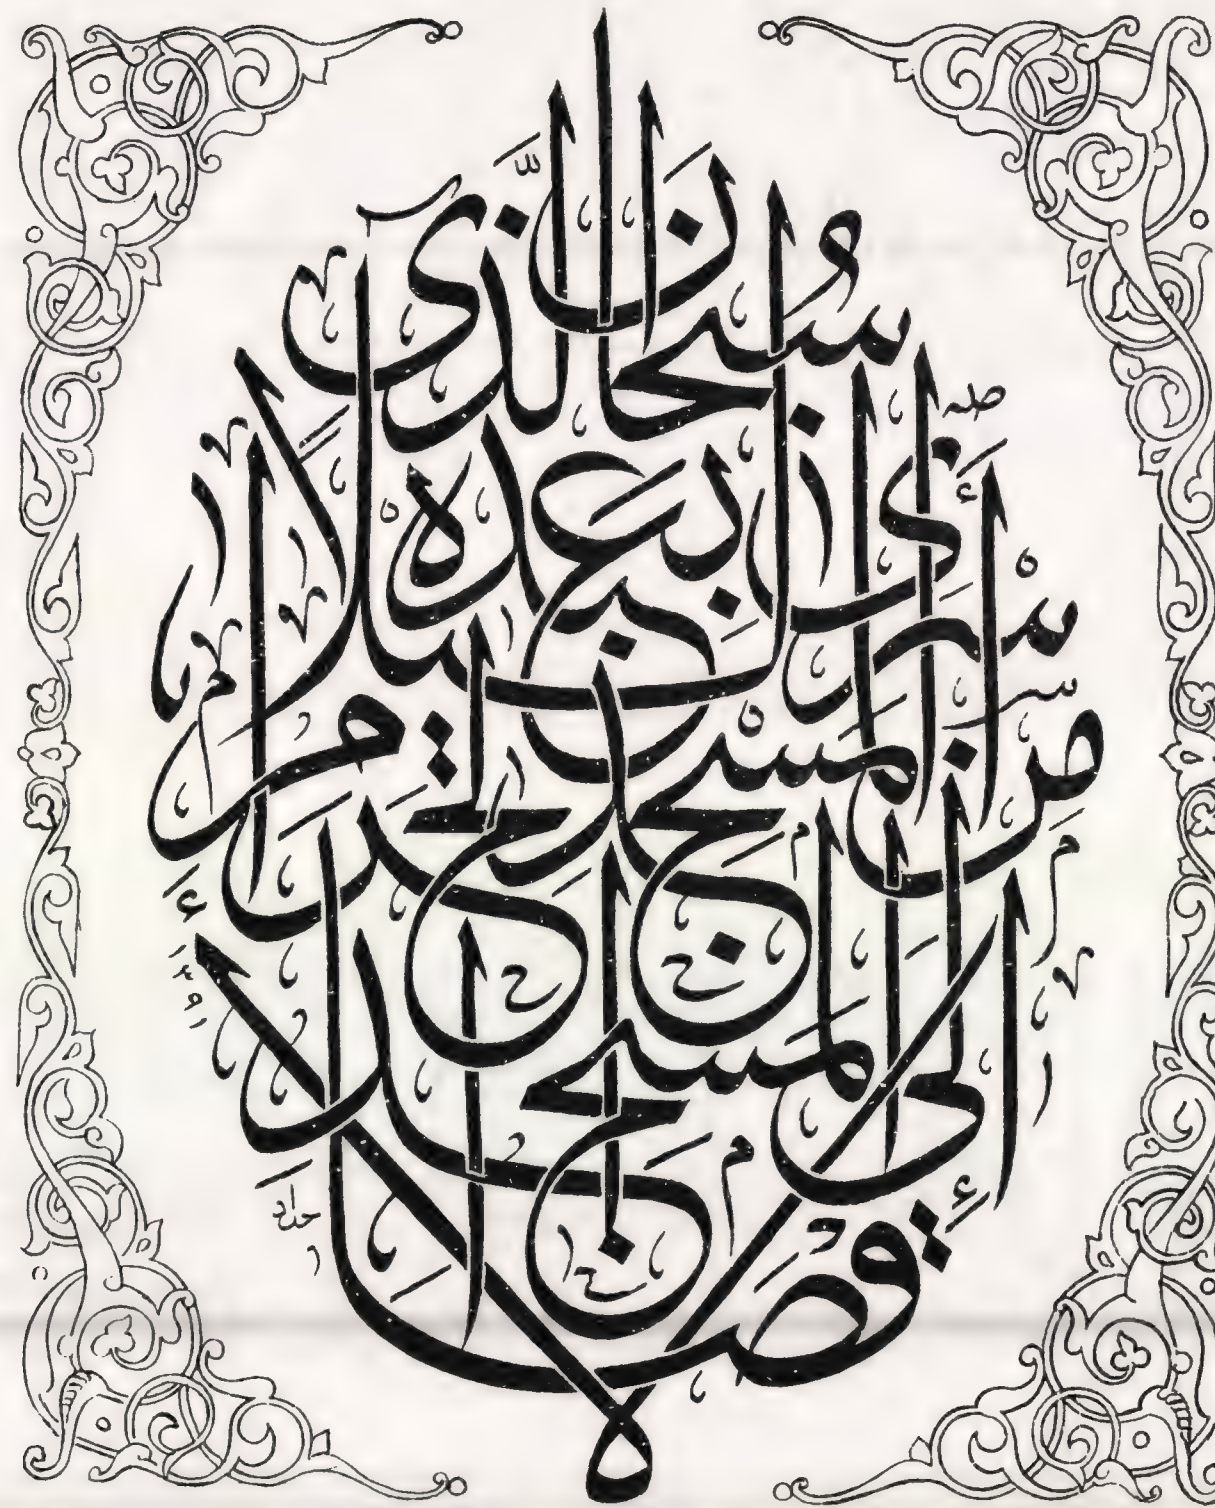 سُبْحَانَ الَّذِي
أَسْرَى بِعَبْدِهِ لَيْلًا
مِنَ الْمَسْجِدِ الْحَرَامِ
إِلَى الْمَسْجِدِ الْأَقْصَا
١٣٩١